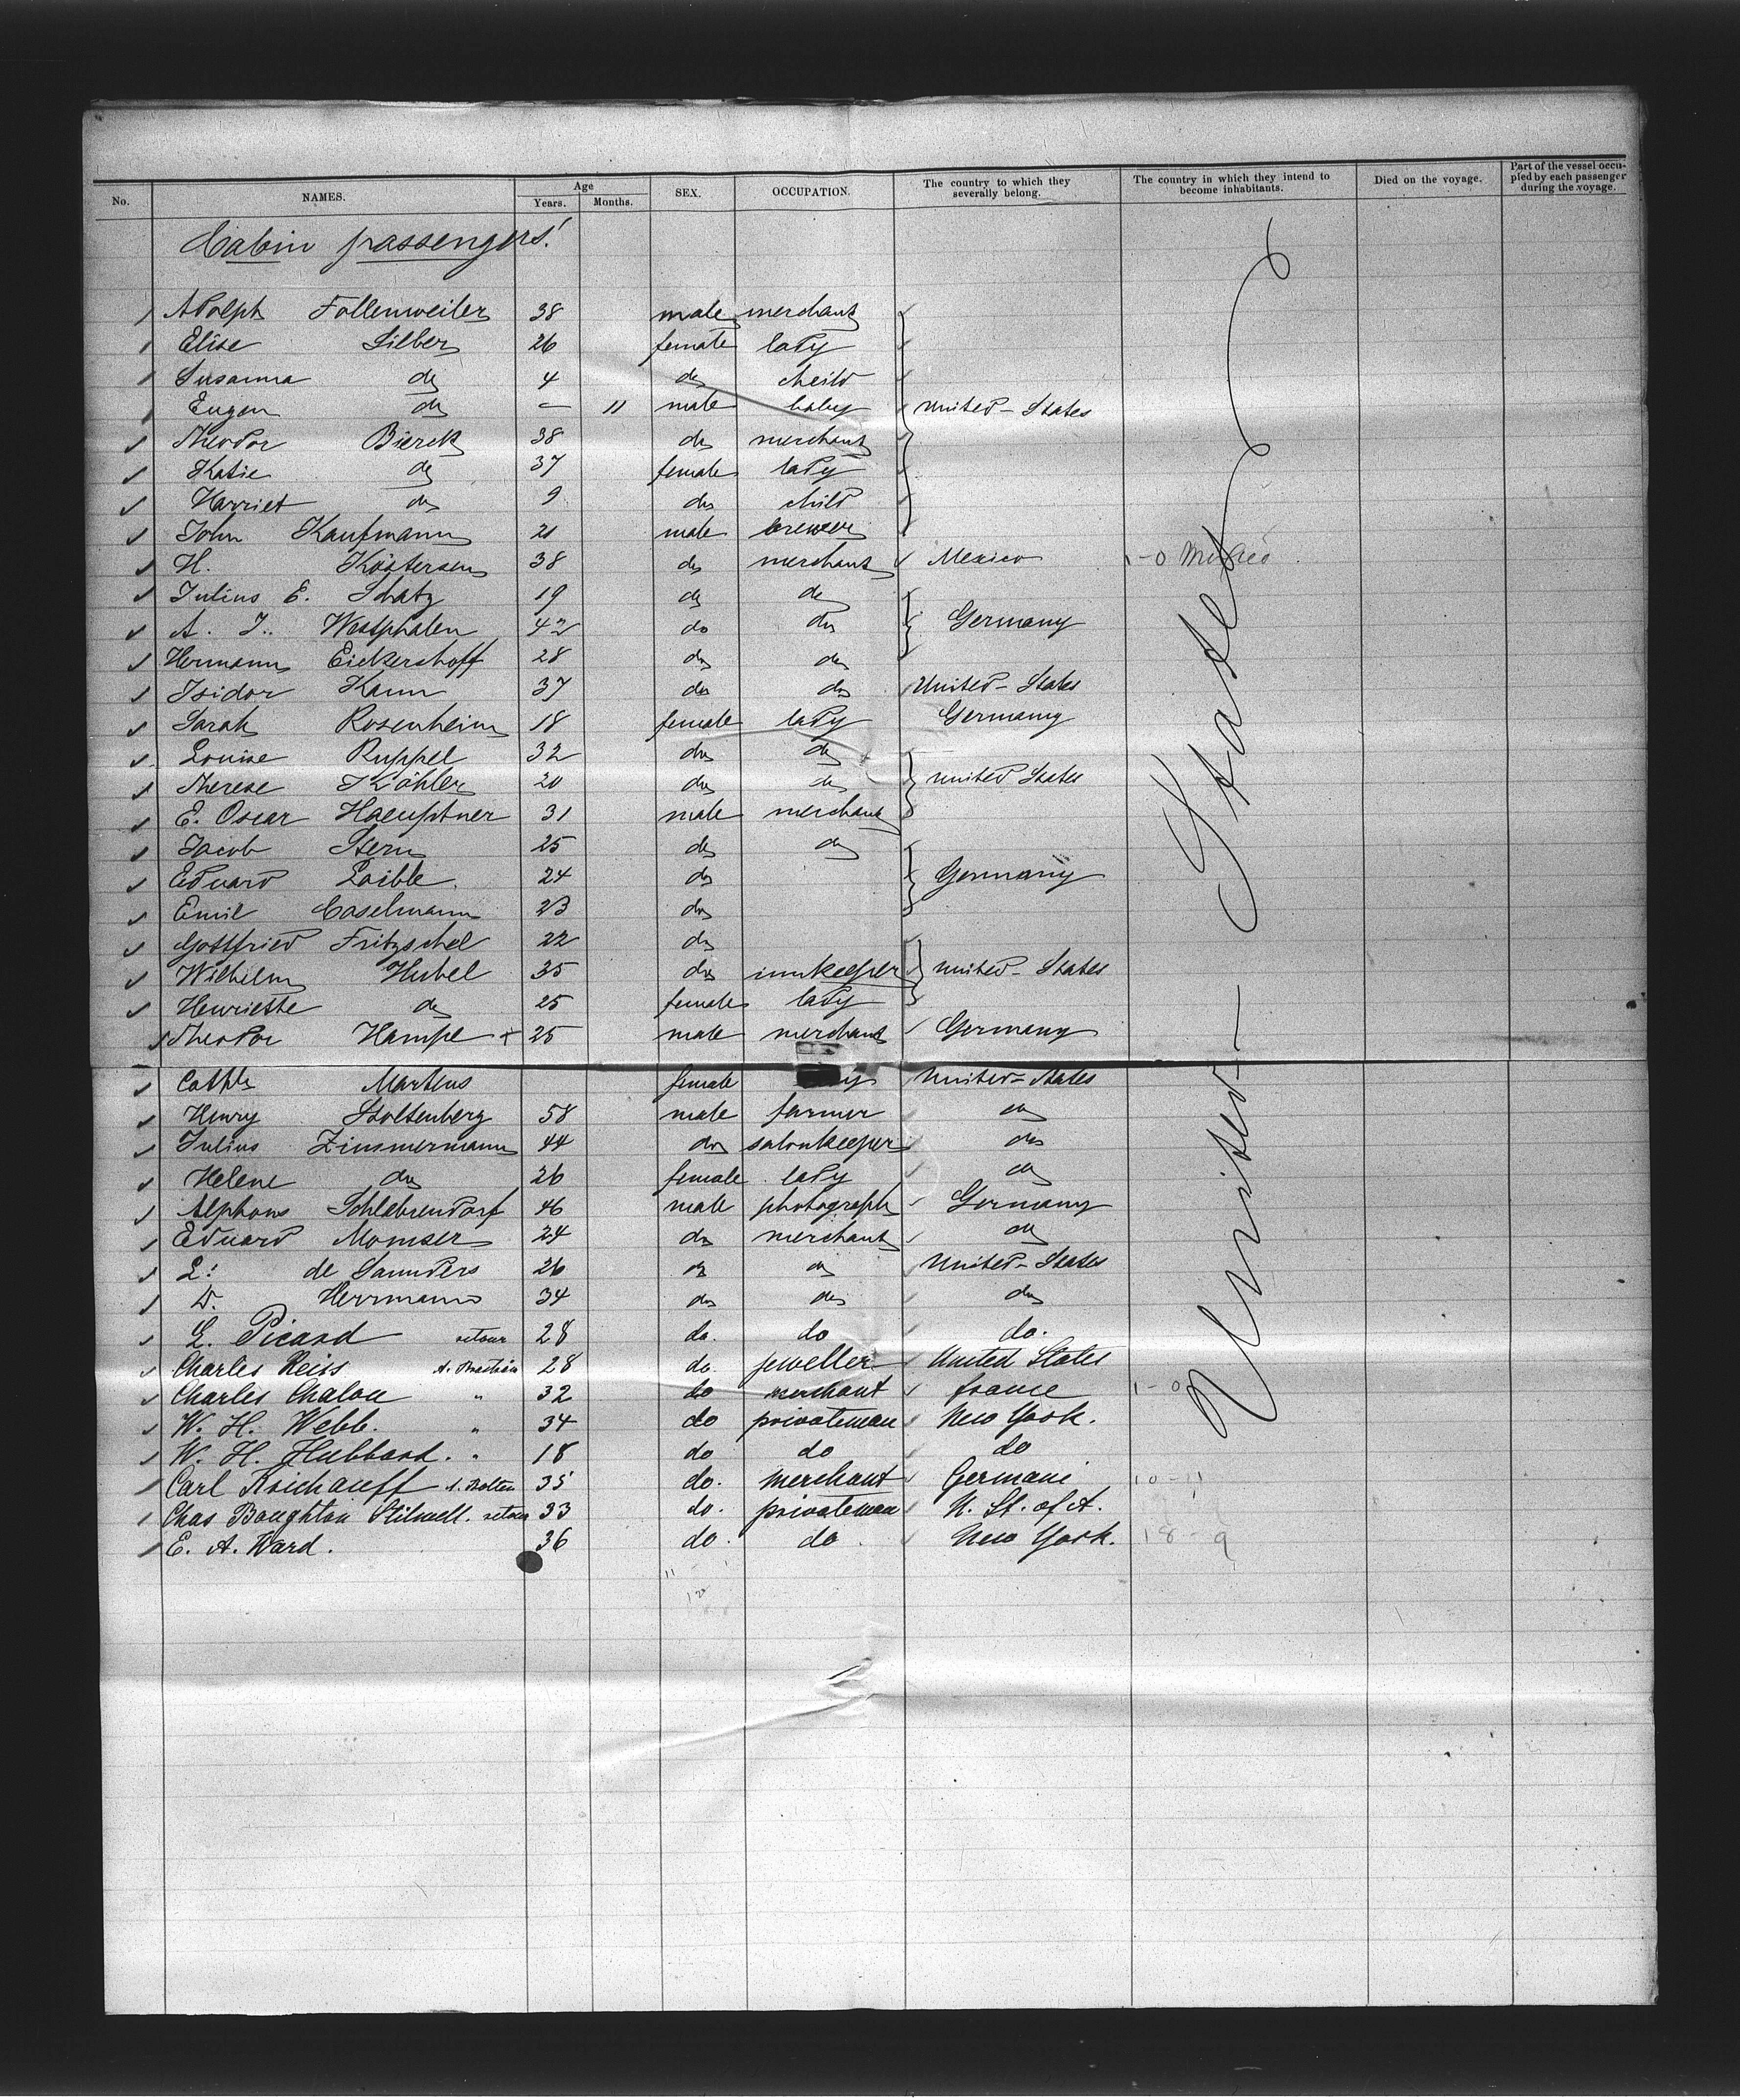 No. NAMES. Age Years. Months. SEX. OCCUPATION. The country to which they severally belong. The country in which they intend to become inhabitants. Died on the voyage. Part of the vessel occupied by each passenger during the voyage.
Cabin passengers!
Adolph Follenweiler 38 male merchant
Elise Silber 26 female lady
Susanna do 4 do cheild
Eugen do — 11 male baby United-States
Theodor Bierck 38 do merchant
Katie do 37 female lady
Harriet do 9 do child
John Kaufmann 21 male brewer
H. Köstersen 38 do merchant Mexico - 0 Mexico
Julius E. Schatz 19 do do
A. J. Westphalen 42 do do Germany
Hermann Eickershoff 28 do do
Isidor Kann 37 do do United-States
Sarah Rosenheim 18 female lady Germany
Louise Ruppel 32 do do
Therese Köhler 20 do do United States
E. Oscar Haeuptner 31 male merchant
Jacob Stern 25 do do
Eduard Laible 24 do Germany
Emil Caselmann 23 do
Gottfried Fritzschel 22 do
Wilhelm Hubel 35 do innkeeper United-States
Henriette do 25 female lady
Theodor Hampe + 25 male merchant Germany
Cathe Martens female United-States
Henry Stoltenberg 58 male farmer do
Julius Zimmermann 44 do salonkeeper do
Helene do 26 female lady do
Alphons Schlabrendorf 46 male photograph Germany
Eduard Momser 24 do merchant do
L. de Saunders 26 do do United-States
D. Herrmann 34 do do do
L. Picard retour 28 do. do do.
Charles Reiss 28 do. jeweller United States
Charles Chalou " 32 do merchant france 1-0
W. H. Webb. " 34 do privateman New York.
W. H. Hubbard. " 18 do do do
Carl Reichauff 35 do. merchant Germani 10-11
Chas Boughton Stilwell. retour 33 do. privateman U. St. of A.
E. A. Ward. 36 do. do. New York. 18-9
United-States